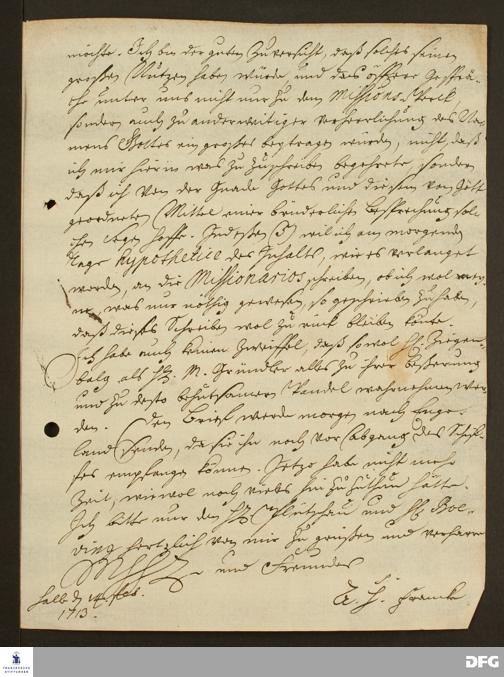 möchte. Ich bin der guten Zuversicht, daß solches seinen
großen Nutzen haben würde, und das öfftere Gesprä-
che unter uns nicht nur zu dem Missions-Werck,
sondern auch zu anderweitiger Verherrlichung des Na-
mens Gottes ein großes beytragen würden, nicht, daß
ich mir hierin was zuzuschreiben begehrete, sondern
daß ich von der Gnade Gottes und diesem von Gott
geordneten Mittel einer brüderlichen Besprechung sol-
chen Segen hoffe. Indeßen will ich am morgenden
Tage hypothetice des Inhalts, wie es verlanget
worden, an die Missionarios schreiben, ob ich wol
was nur nöthig gewesen, so geschrieben zu haben,
daß dieses Schreiben wol zurück bleiben könte.
Ich habe auch keinen Zweiffel, daß sowol H. Ziegen-
balg als H. Gründler alles zu ihrer Beßerung
und zu desto behutsamern Wandel wahrnehmen wer-
den. Den Brief werde morgen nach Enge-
land senden, da sie ihn noch vor Abgang des Schif-
fes empfangen können. Jetzo habe nicht mehr
Zeit, wiewol noch vieles hinzuzuthun hätte.
Ich bitte nur den H. Plütschau und H. Böl-
ding hertzlich von mir zu grüßen und verharre
und Freundes
Halle d. Feb.
1713.
A. H. Francke
FRANCKESCHE STIFTUNGEN
DFG